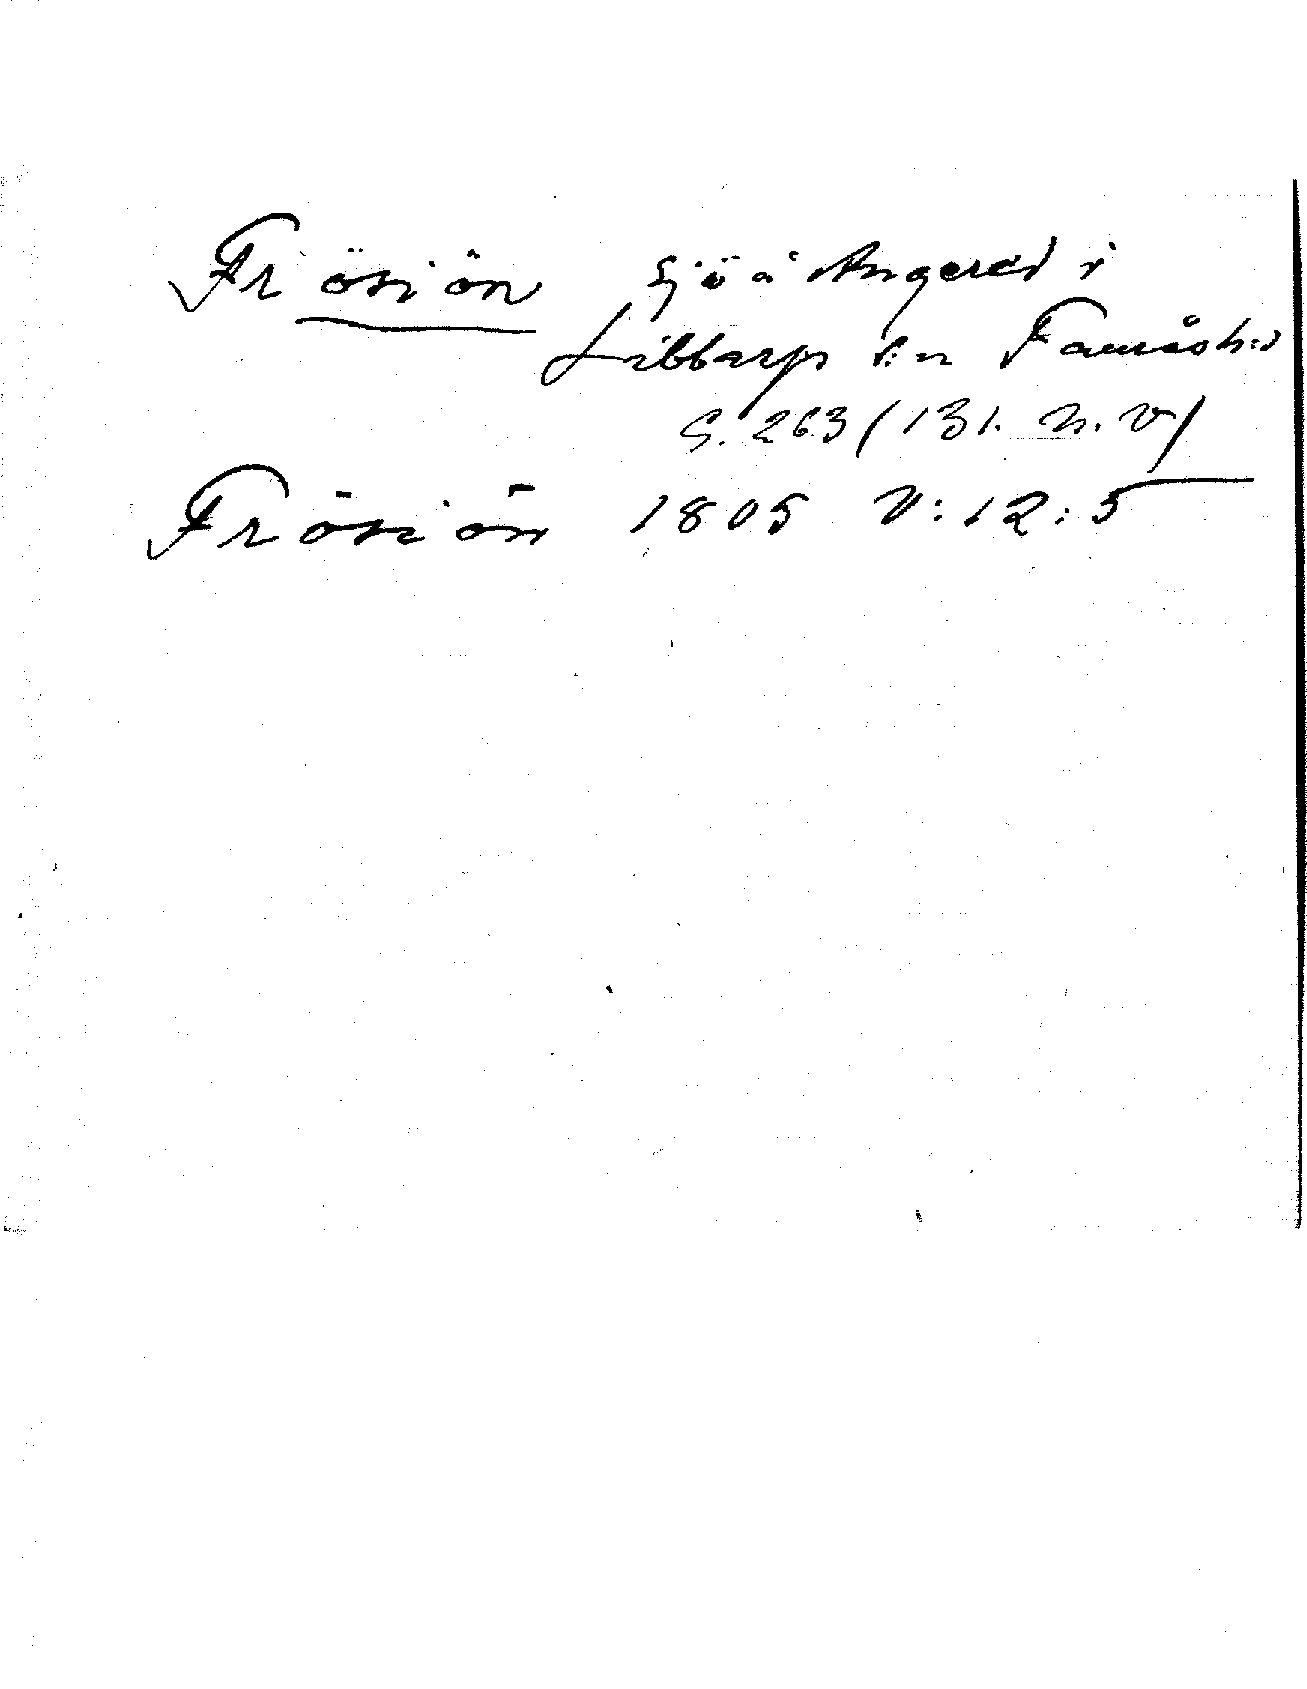 Frösjön sjö å Angered i
Libbarps s:n Faurås h:d
G. 263 (131. N. V)
Frösjön 1805 V:12:5